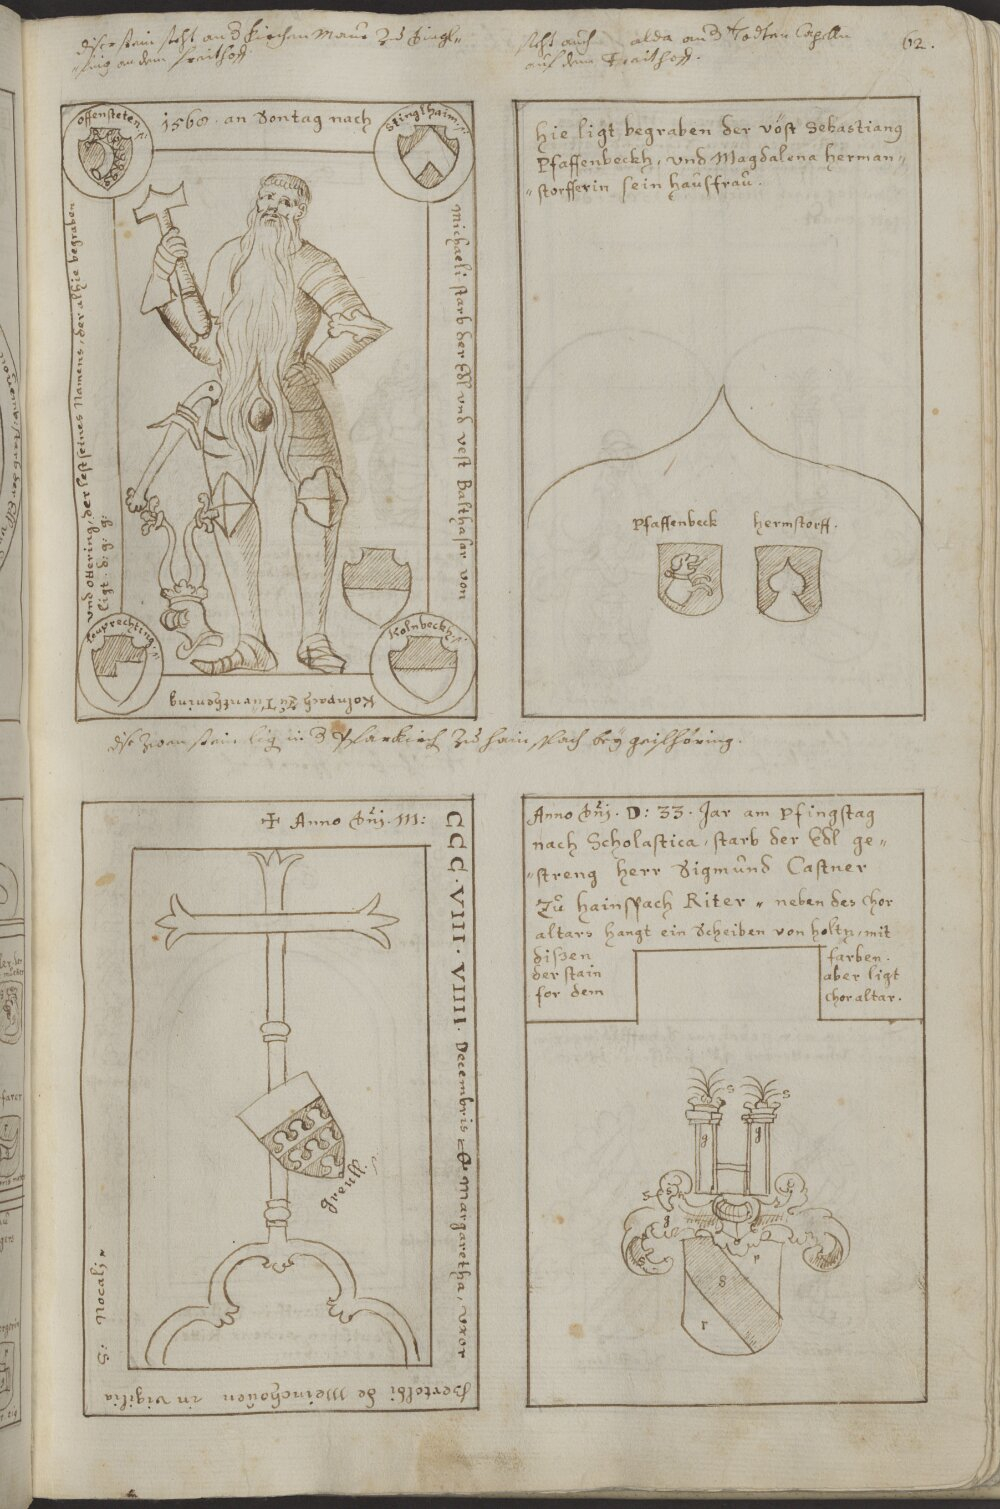 diser stain steht an d kirchen Maur zu Singl„
„fing an dem freithoff
steht auch alda an d Todten Capelln
auf dem Freithoff.
62.
Offensteten
1568. an Sontag nach
Stinglhaim
Michaeli starb der Edl und vest Balthasar von
Kolnpach zu Türnthening
und Ottering, der lest seines Namens, der alhie begraben
ligt. d. g. g.
Leuprechting
Kolnbeckh
Hie ligt begraben der vöst Sebastiang
Pfaffenbeckh, und Magdalena herman„
„storfferin sein hausfrau.
Pfaffenbeck
hermstorff.
dise zwen stain lig in d Pfarkirch zu hainspach bey geislhöring.
✠ Anno Dnj. M:
CCC. VIII. VIIII. Decembris Margaretha, uxor
Bertoldi de Meinchoven in vigilia
S: Nocalj„
greull
Anno Dnj. D: 33. Jar am Pfingstag
nach Scholastica, starb der Edl ge„
„streng herr Sigmund Castner
Zu hainspach Riter„ neben des Chor
altars hangt ein Scheiben von holtz, mit
disen farben.
der stain aber ligt
for dem Choraltar.
s s
g g
s s
g
r
s
r